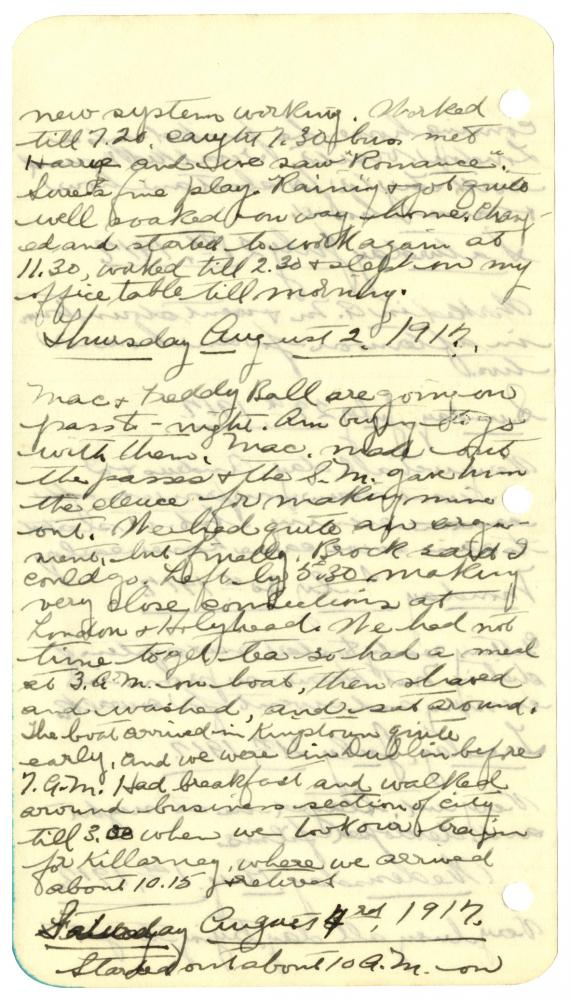 new system working. Worked
till 7.20, caught 7.30 bus. met
Harrye and we saw "Romance".
Sure is fine play. Raining & got quite
well soaked on way home. Chang-
ed and started to work again at
11.30, worked till 2.30 & slept on my
office table till morning.
Thursday August 2, 1917.
Mac & Freddy Ball are going on
pass to-night. Am trying to go
with them. Mac. made out
the passes & the S.M. gave him
the deuce for making mine
out. We had quite an argu-
ment, but finally, Brock said I
could go. Left by 5.30 making
very close connections at
London & Holyhead. We had not
time to get tea so had a meal
at 3.A.M. on boat, then shaved
and washed, and sat around.
The boat arrived in Kingstown quite
early, and we were in Dublin before
7.A.M. Had breakfast and walked
around business section of city
till 3.00 when we took our train
for Killarney, where we arrived
about 10.15 & retired
day August 1917.
Started out about 10 A.M. on